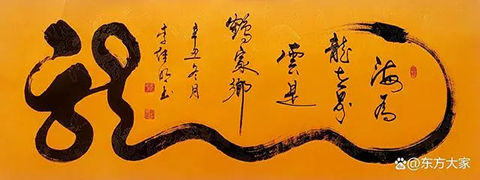 海為
龍世界
雲是
鶴家鄉
辛丑冬月
龍
@东方大家